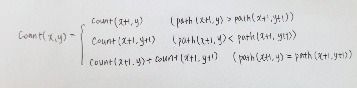 count(x+1, y) (path(x+1, y) > path(x+1, y+1))
Count(x,y) = { count(x+1, y+1) (path(x+1, y) < path(x+1, y+1))
count(x+1, y) + count(x+1, y+1) (path(x+1, y) = path(x+1, y+1))